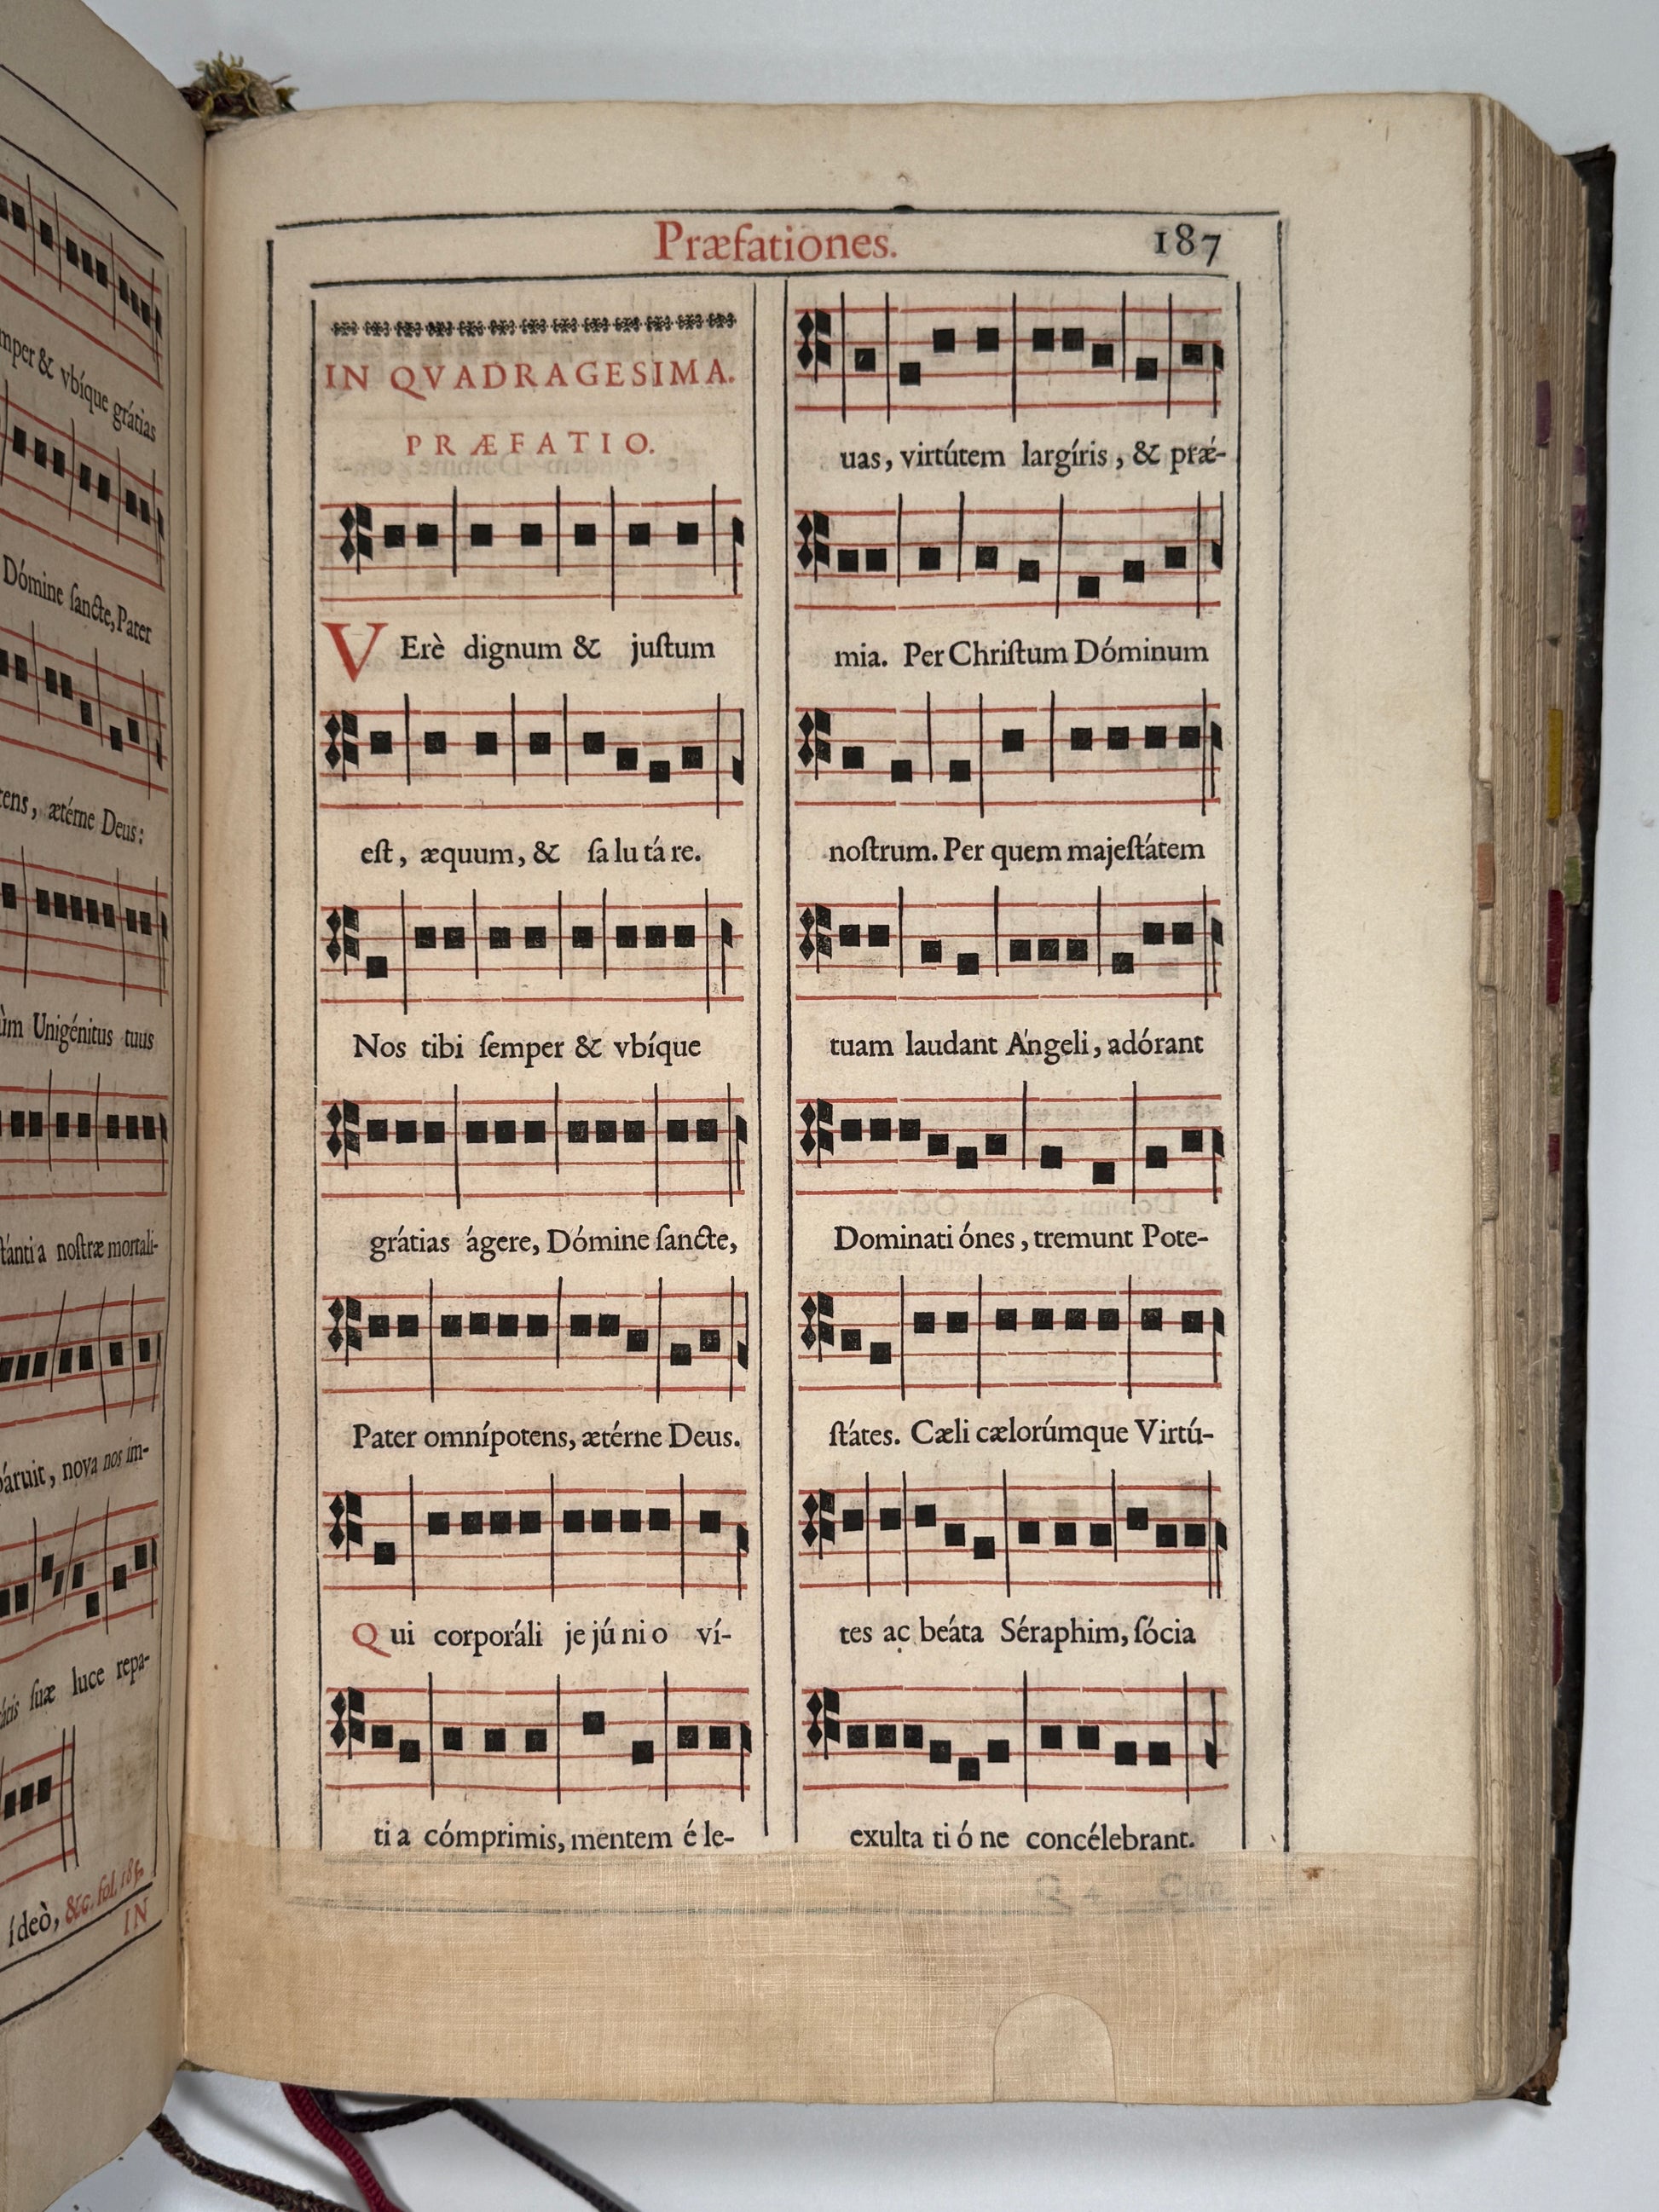 mper & vbíque grátias
Dómine ſancte, Pater
tens, ætérne Deus:
ùm Unigénitus tuus
ſtánti a noſtræ mortali-
páruit, nova nos im-
átis ſuæ luce repa-
ídeò, &c. fol. 186
IN
Præfationes. 187
IN QVADRAGESIMA.
PRÆFATIO.
VErè dignum & juſtum
eſt, æquum, & ſa lu tá re.
Nos tibi ſemper & vbíque
grátias ágere, Dómine ſancte,
Pater omnípotens, ætérne Deus.
Qui corporáli je jú ni o ví-
ti a cómprimis, mentem é le-
uas, virtútem largíris, & præ-
mia. Per Chriſtum Dóminum
noſtrum. Per quem majeſtátem
tuam laudant A'ngeli, adórant
Dominati ónes, tremunt Pote-
ſtátes. Cæli cælorúmque Virtú-
tes ac beáta Séraphim, ſócia
exulta ti ó ne concélebrant.